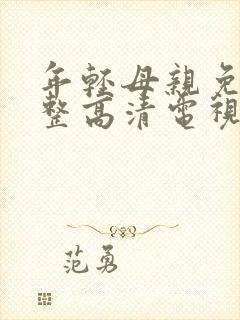 年輕母親免
整高清電視
范勇